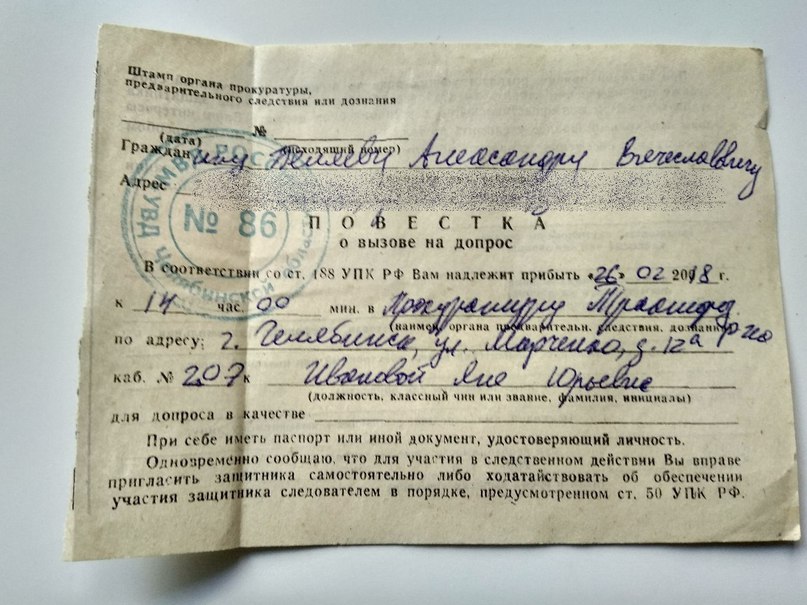 Штамп органа прокуратуры,
предварительного следствия или дознания
№
(дата) (исходящий номер)
Гражданину Беляеву Александру Вячеславовичу
Адрес
МВД РОССИИ УВД Челябинской области
№ 86
ПОВЕСТКА
о вызове на допрос
В соответствии со ст. 188 УПК РФ Вам надлежит прибыть «26» 02 2018 г.
к 14 час. 00 мин. в Прокуратуру Тракторо-
(наимен. органа предварительн. следствия, дознания) го
по адресу: г. Челябинск, ул. Марченко, д. 12а р-на
каб. № 207 к Ивановой Яне Юрьевне
(должность, классный чин или звание, фамилия, инициалы)
для допроса в качестве
При себе иметь паспорт или иной документ, удостоверяющий личность.
Одновременно сообщаю, что для участия в следственном действии Вы вправе
пригласить защитника самостоятельно либо ходатайствовать об обеспечении
участия защитника следователем в порядке, предусмотренном ст. 50 УПК РФ.